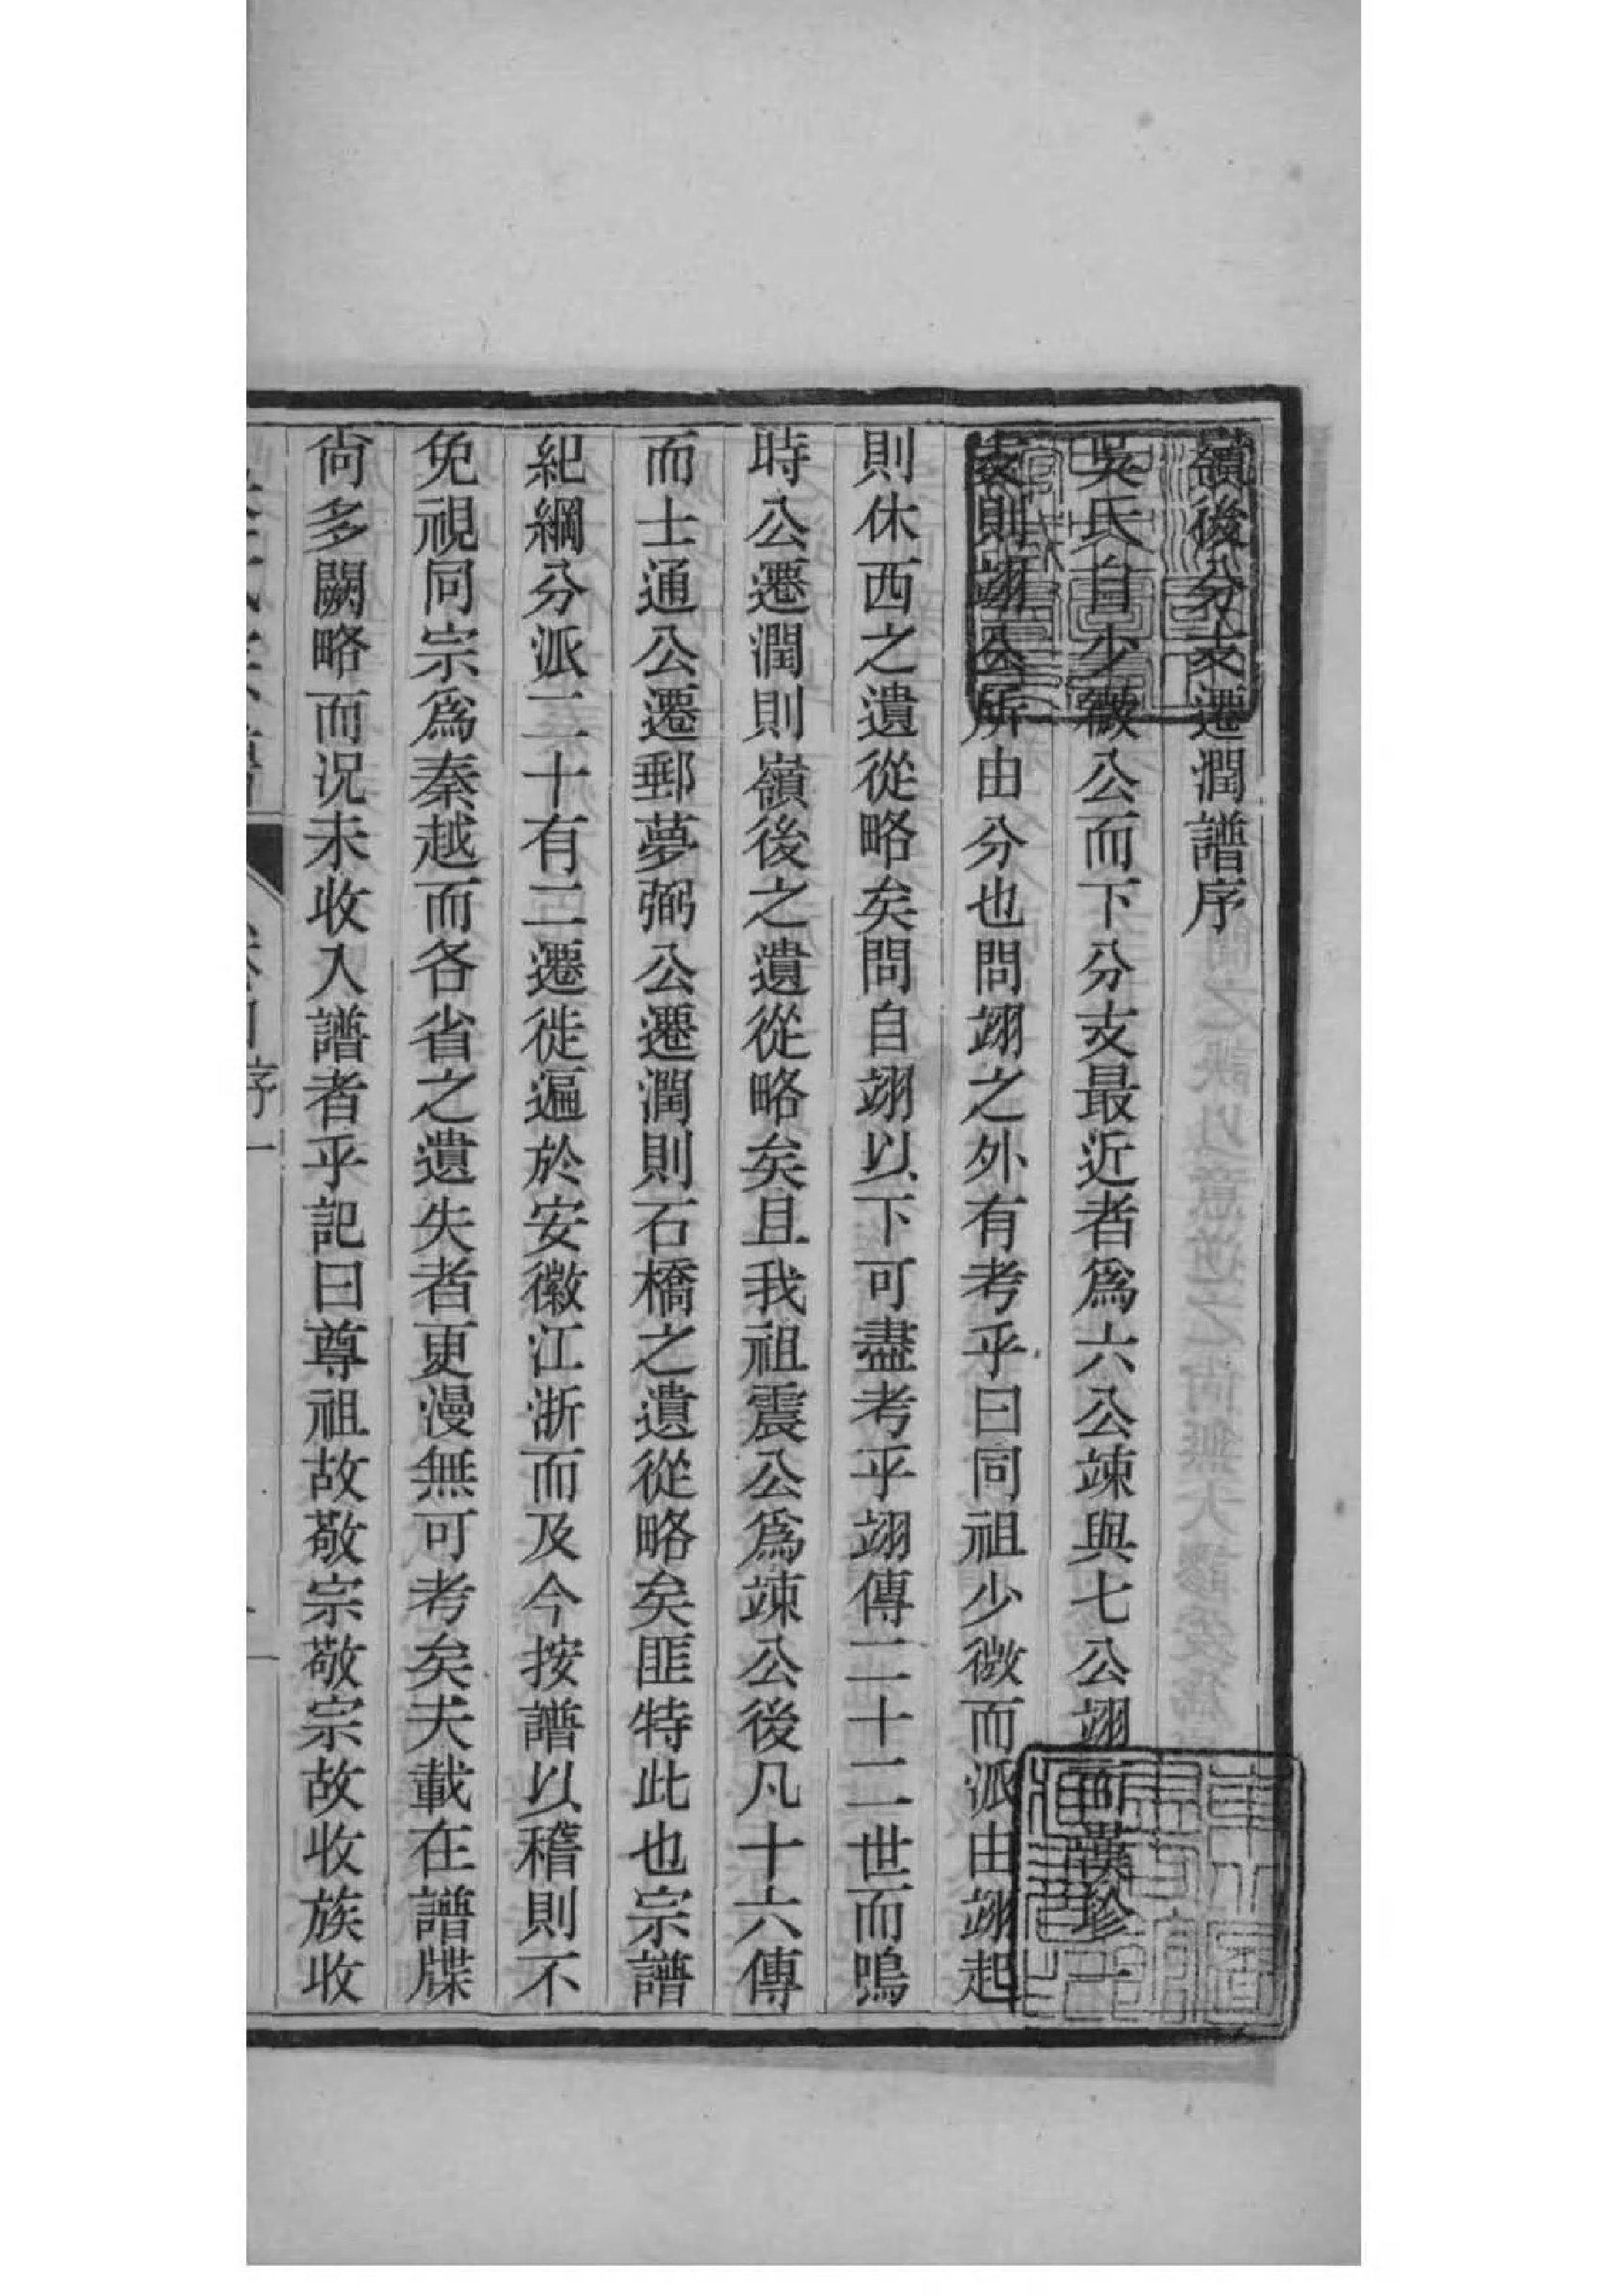 嶺後分支遷潤譜序
吳氏自少微公而下分支最近者爲六公竦與七公翊而漢珍一
支則翊公所由分也問翊之外有考乎曰同祖少微而派由翊起
則休西之遺從略矣問自翊以下可盡考乎翊傳二十二世而鳴
時公遷潤則嶺後之遺從略矣且我祖震公爲竦公後凡十六傳
而士通公遷郵夢弼公遷潤則石橋之遺從略矣匪特此也宗譜
紀綱分派二十有二遷徙遍於安徽江浙而及今按譜以稽則不
免視同宗爲秦越而各省之遺失者更漫無可考矣夫載在譜牒
尚多闕略而況未收入譜者乎記曰尊祖故敬宗敬宗故收族收
序一